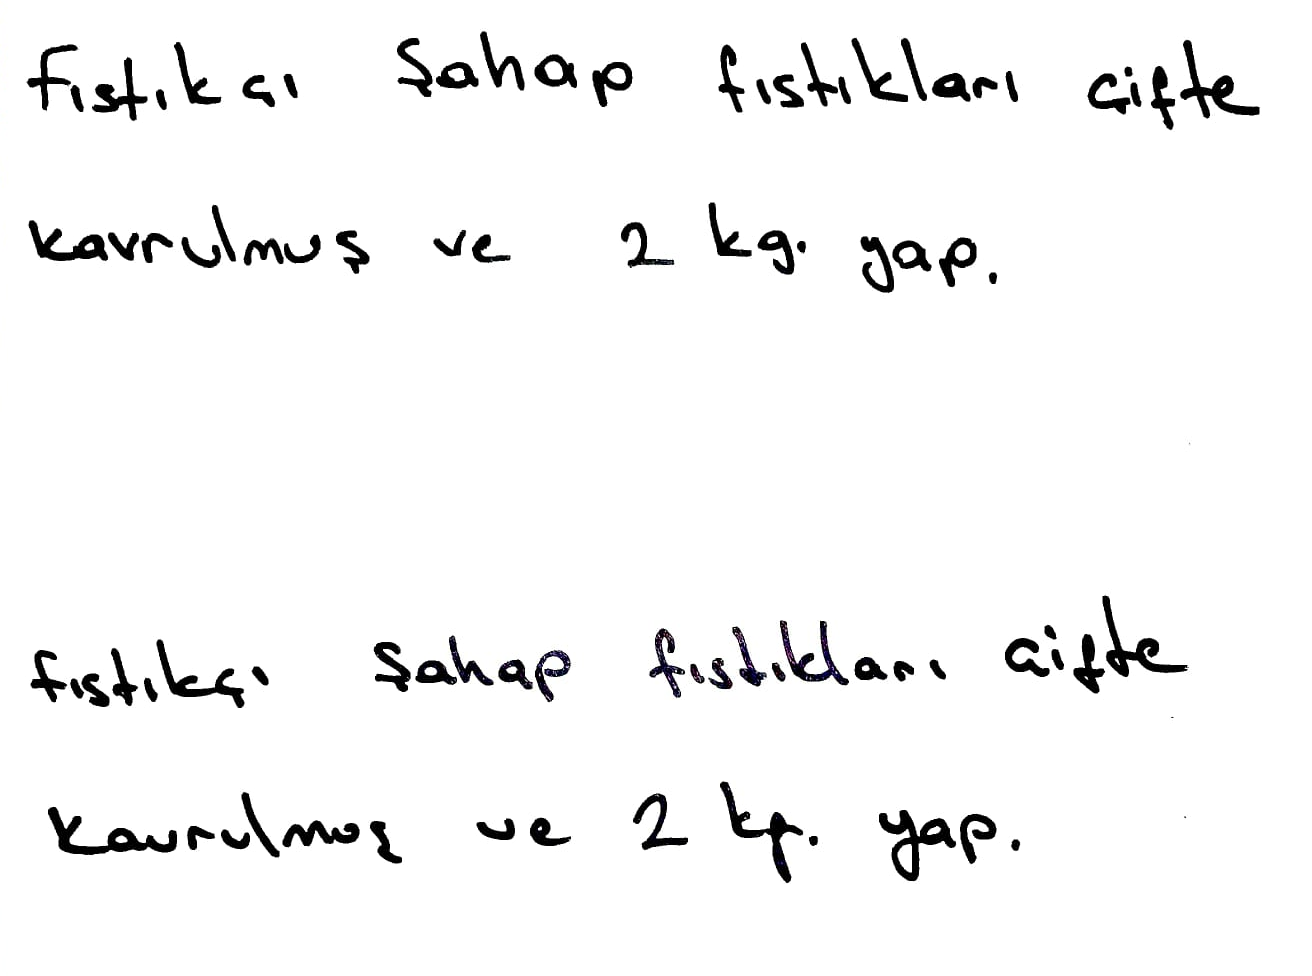 Fıstıkçı Şahap fıstıkları çifte
kavrulmuş ve 2 kg. yap.
fıstıkçı Şahap fıstıkları çifte
kavrulmuş ve 2 kg. yap.